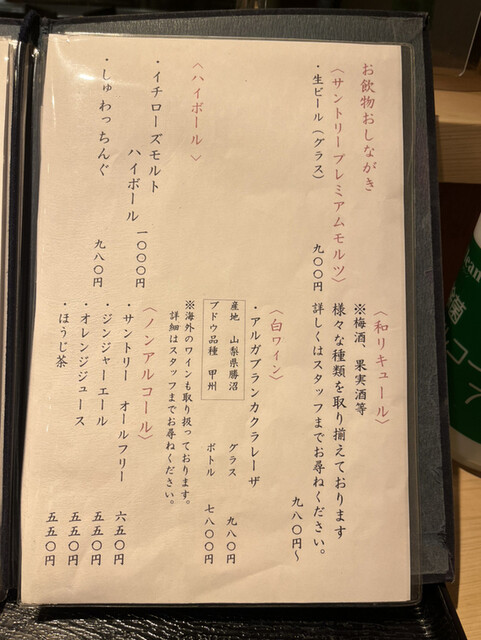 お飲物おしながき
〈サントリープレミアムモルツ〉
・生ビール（グラス）
九〇〇円
〈ハイボール〉
・イチローズモルト
ハイボール
一〇〇〇円
・しゅわっちんぐ
九八〇円
〈和リキュール〉
※梅酒、果実酒等
様々な種類を取り揃えております
詳しくはスタッフまでお尋ねください。
九八〇円～
〈白ワイン〉
・アルガブランカクラレーザ
産地　山梨県勝沼
ブドウ品種　甲州
グラス　九八〇円
ボトル　七八〇〇円
※海外のワインも取り扱っております。
詳細はスタッフまでお尋ねください。
〈ノンアルコール〉
・サントリー　オールフリー　六五〇円
・ジンジャーエール　五五〇円
・オレンジジュース　五五〇円
・ほうじ茶　五五〇円